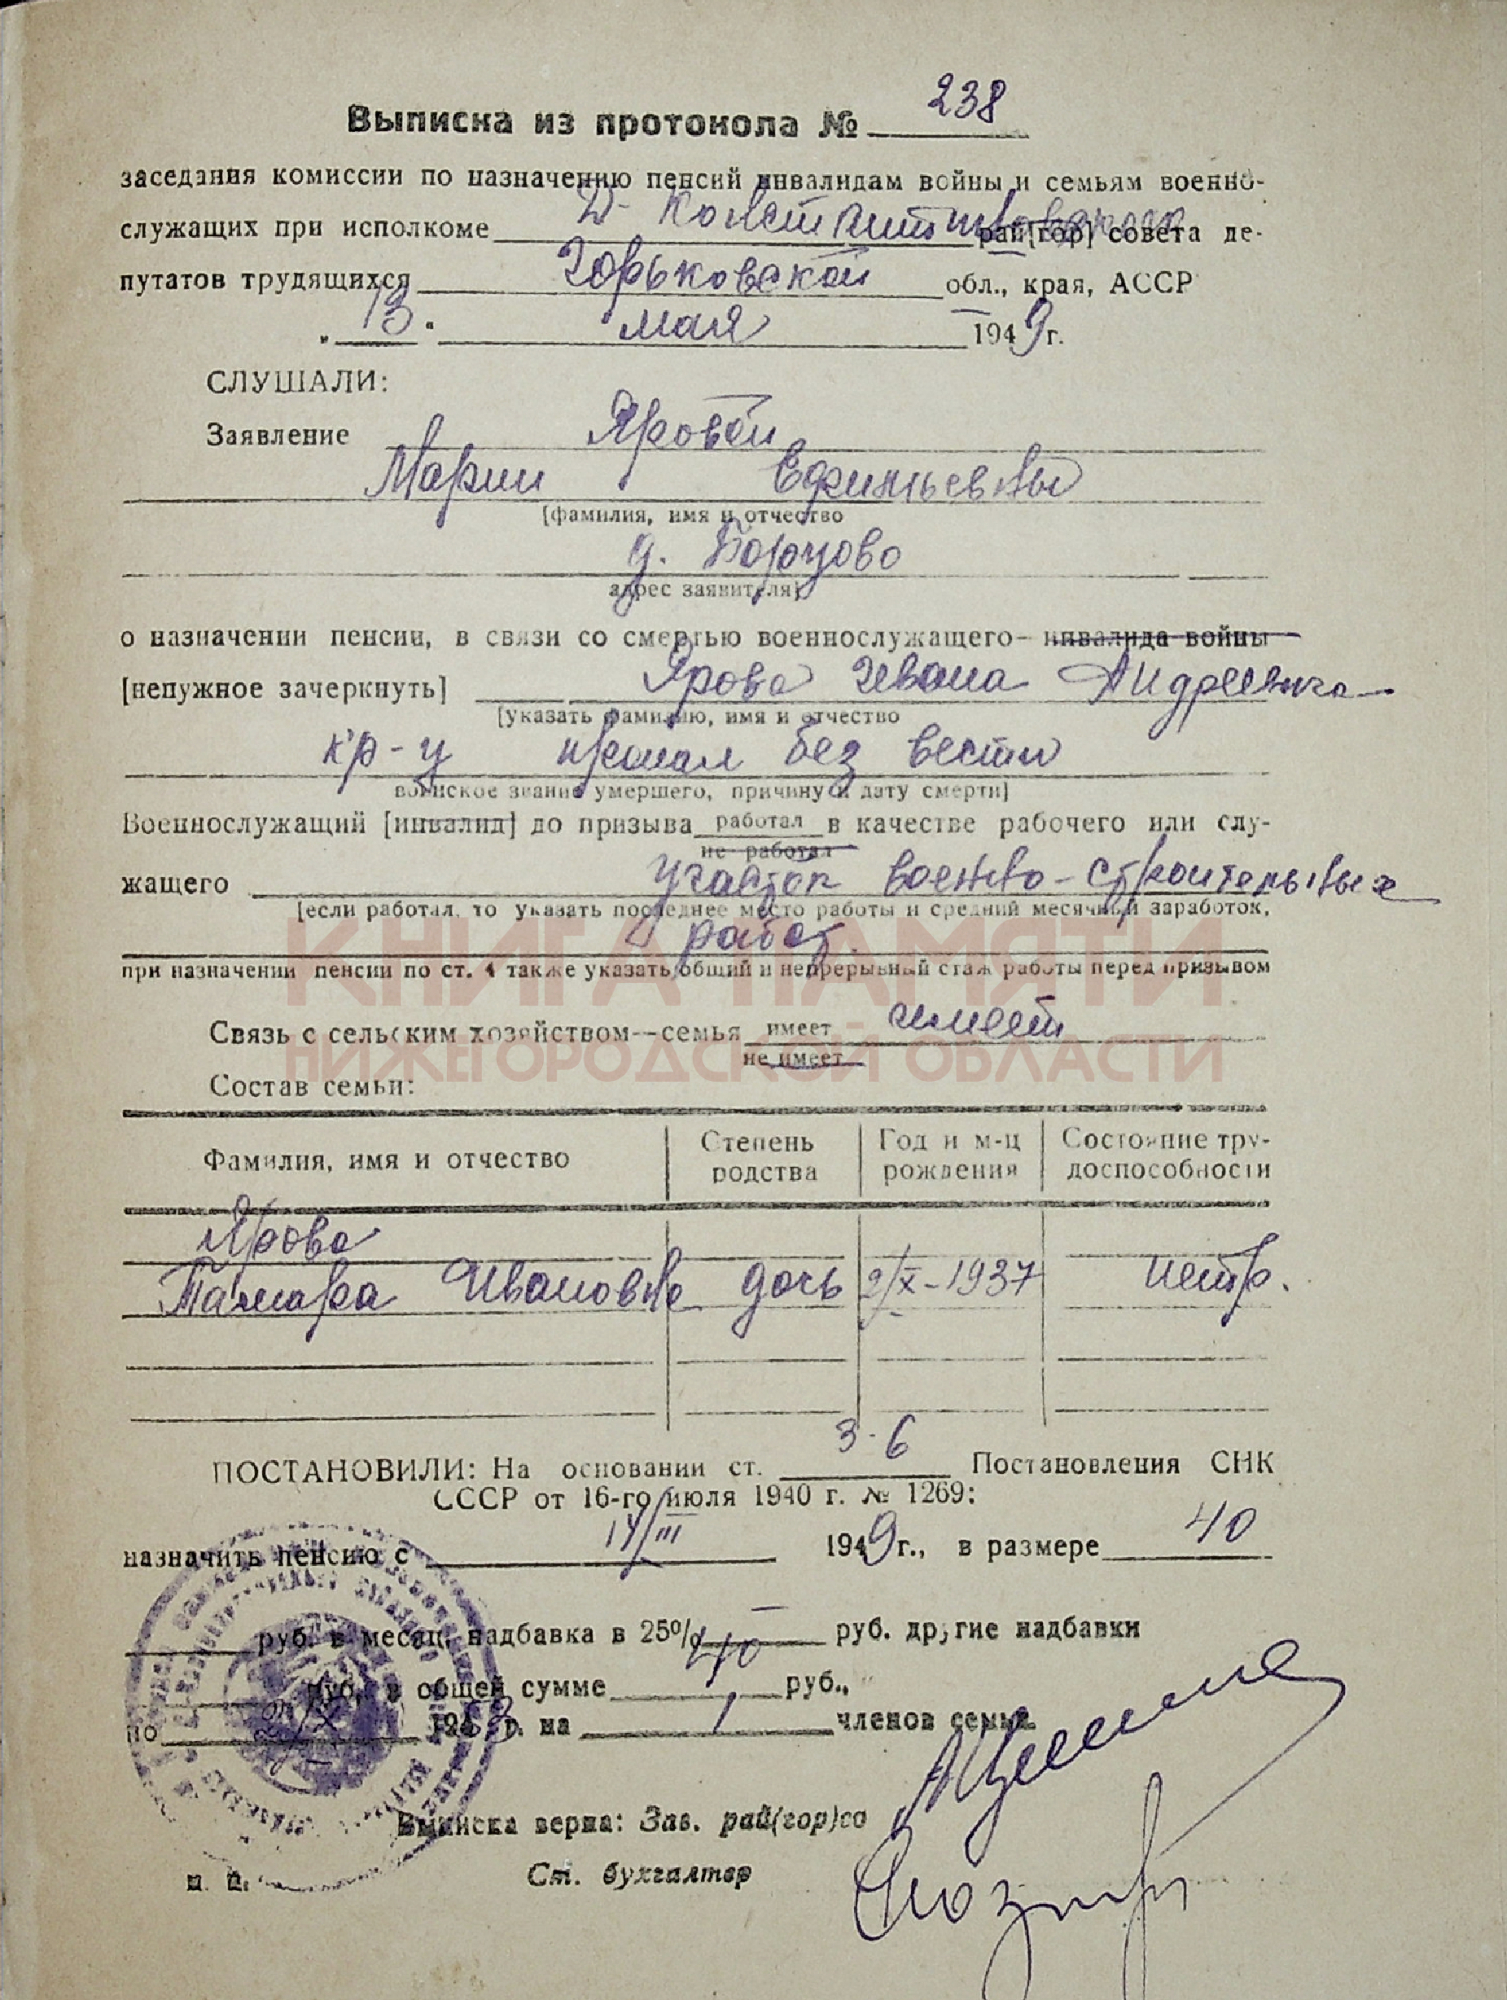 Выписка из протокола № 238
заседания комиссии по назначению пенсий инвалидам войны и семьям военно-
служащих при исполкоме Д-Константиновском рай[гор] совета де-
путатов трудящихся Горьковской обл., края, АССР
„ 13 " мая 1949 г.
СЛУШАЛИ:
Заявление Яровой
Марии Ефимьевны
[фамилия, имя и отчество
д. Борцово
адрес заявителя]
о назначении пенсии, в связи со смертью военнослужащего- инвалида войны
[непужное зачеркнуть] Ярова Ивана Андреевича
[указать фамилию, имя и отчество
кр-ц пропал без вести
воинское звание умершего, причину и дату смерти]
Военнослужащий [инвалид] до призыва работал в качестве рабочего или слу-
не работал
жащего участок военно-строительных
[если работал, то указать последнее место работы и средний месячный заработок,
работ.
при назначении пенсии по ст. 4 также указать общий и непрерывный стаж работы перед призывом
КНИГА ПАМЯТИ
НИЖЕГОРОДСКОЙ ОБЛАСТИ
Связь с сельским хозяйством—семья имеет имеет
не имеет
Состав семьи:
Фамилия, имя и отчество Степень родства Год и м-ц рождения Состояние тру-доспособности
Ярова
Тамара Ивановна дочь 2/X-1937 нетр.
ПОСТАНОВИЛИ: На основании ст. 3-6 Постановления СНК
СССР от 16-го июля 1940 г. № 1269:
назначить пенсию с 14/III 1949 г., в размере 40
руб. в месяц, надбавка в 25% — руб. другие надбавки
руб., в общей сумме 40 руб.,
по 2/X 1953 г. на 1 членов семьи.
Выписка верна: Зав. рай(гор)со
Ст. бухгалтер